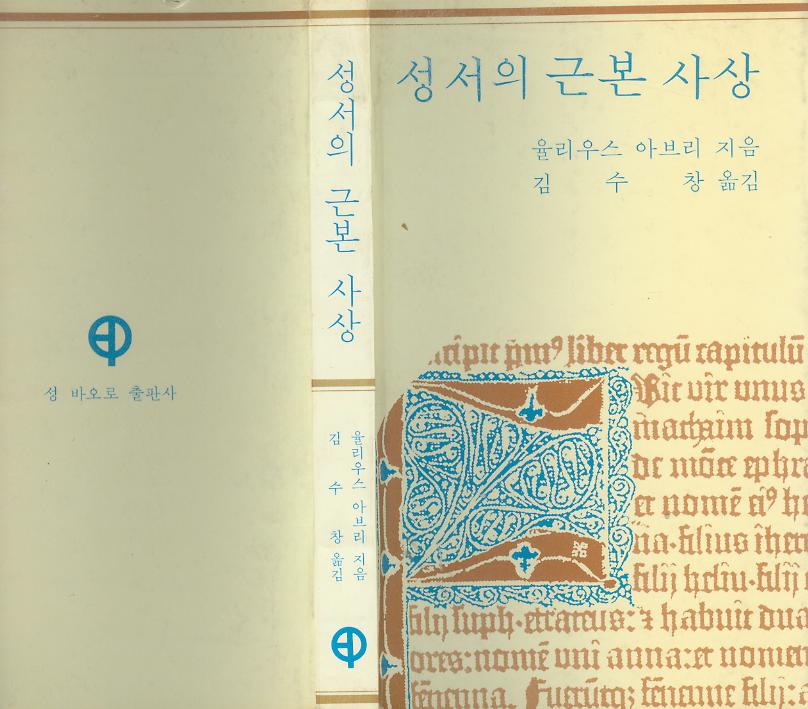 성서의 근본 사상
율리우스 아브리 지음
김 수 창 옮김
성서의 근본 사상
율리우스 아브리 지음
김 수 창 옮김
성 바오로 출판사
liber regū capitulū
vir unus
de mōte ephra
et nomē ei⁹
filius
filij heliu·filij
filij suph·
: ⁊ habuit dua
ores: nomē uni anna: et nomen
fenenna. Fuerūtqꝫ fenenne filij: